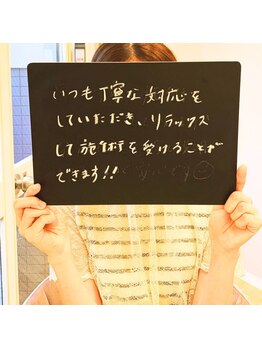 いつも丁寧な対応を
していただき、リラックス
して施術を受けることが
できます!!